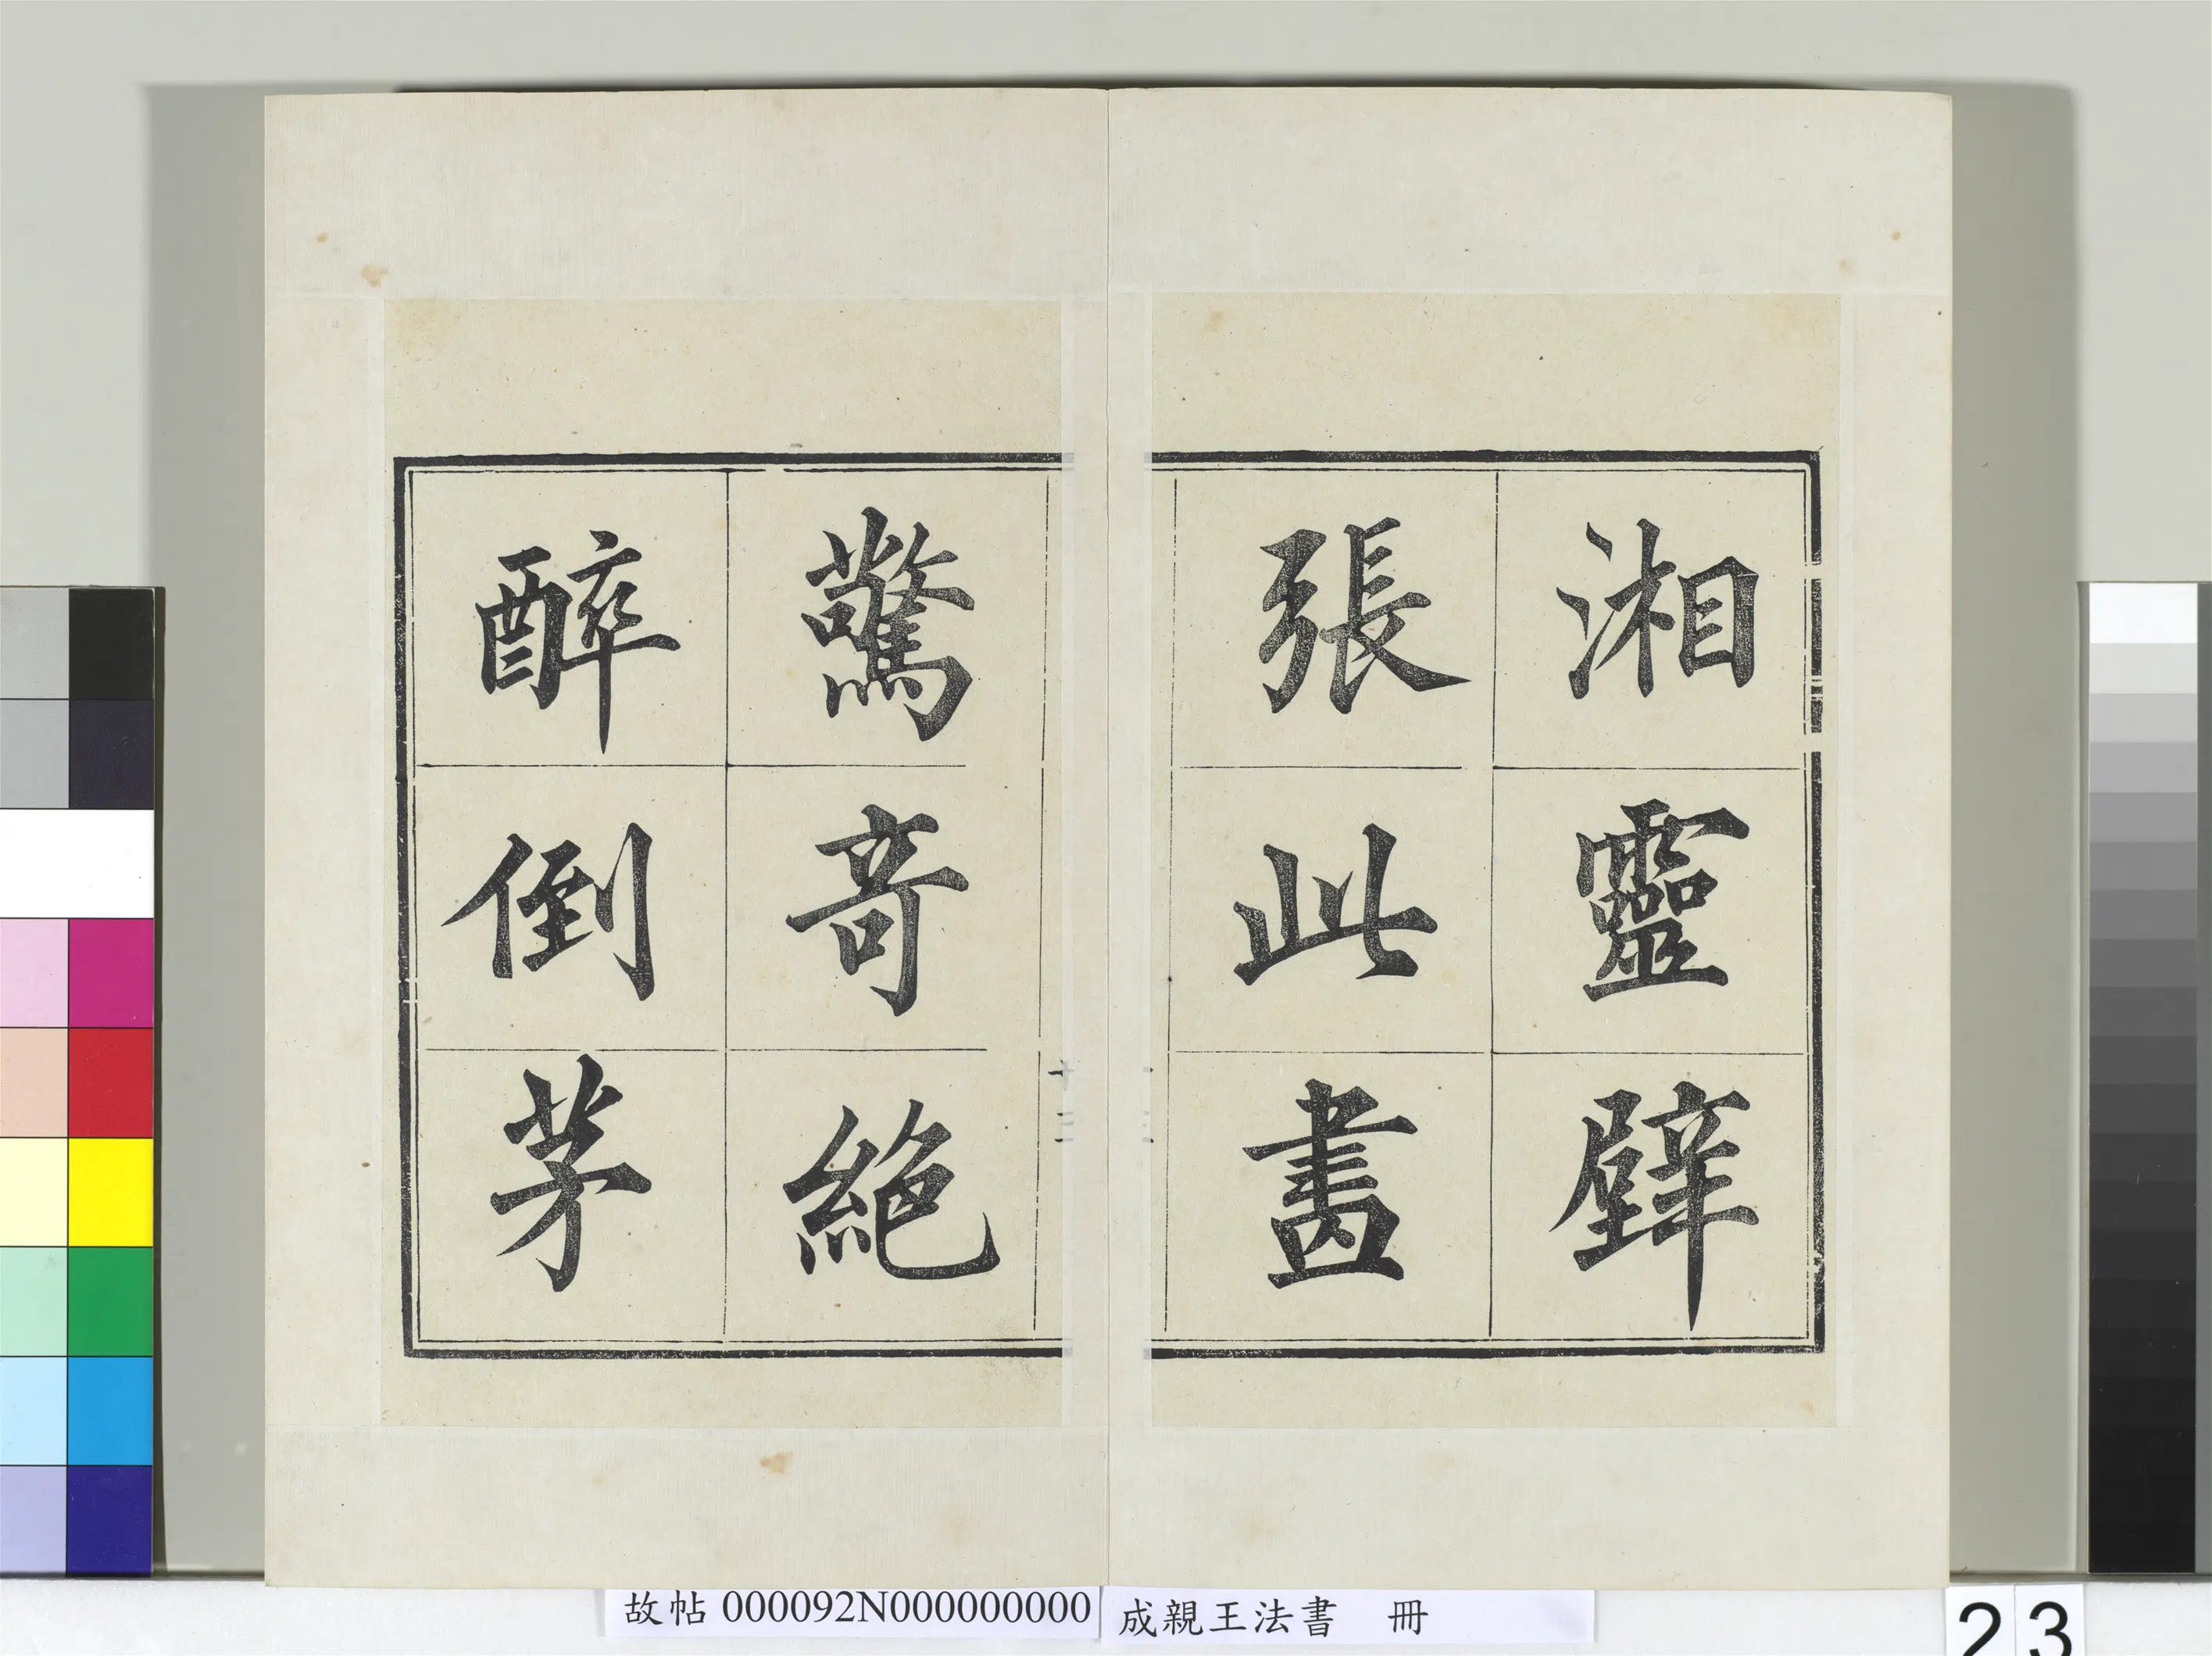 湘靈擘
張此畫
驚奇絶
醉倒茅
故帖 000092N000000000
成親王法書 冊
23